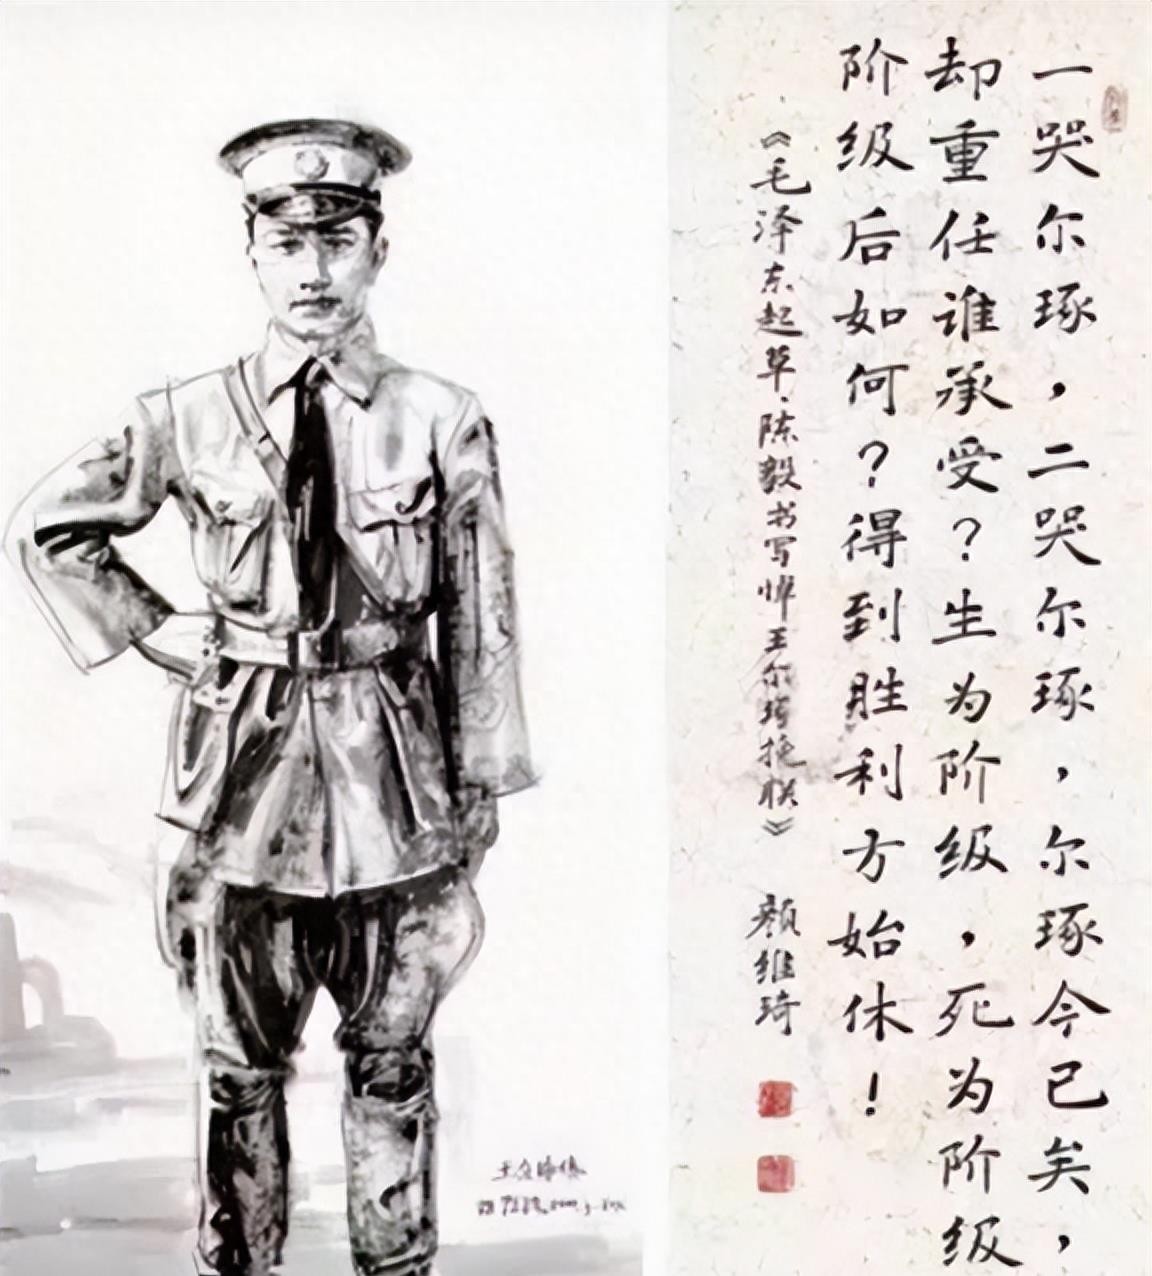 一哭尔琢，二哭尔琢，尔琢今已矣，
却重任谁承受？生为阶级，死为阶级
阶级后如何？得到胜利方始休！
《毛泽东起草、陈毅书写悼王尔琢挽联》 颜维琦